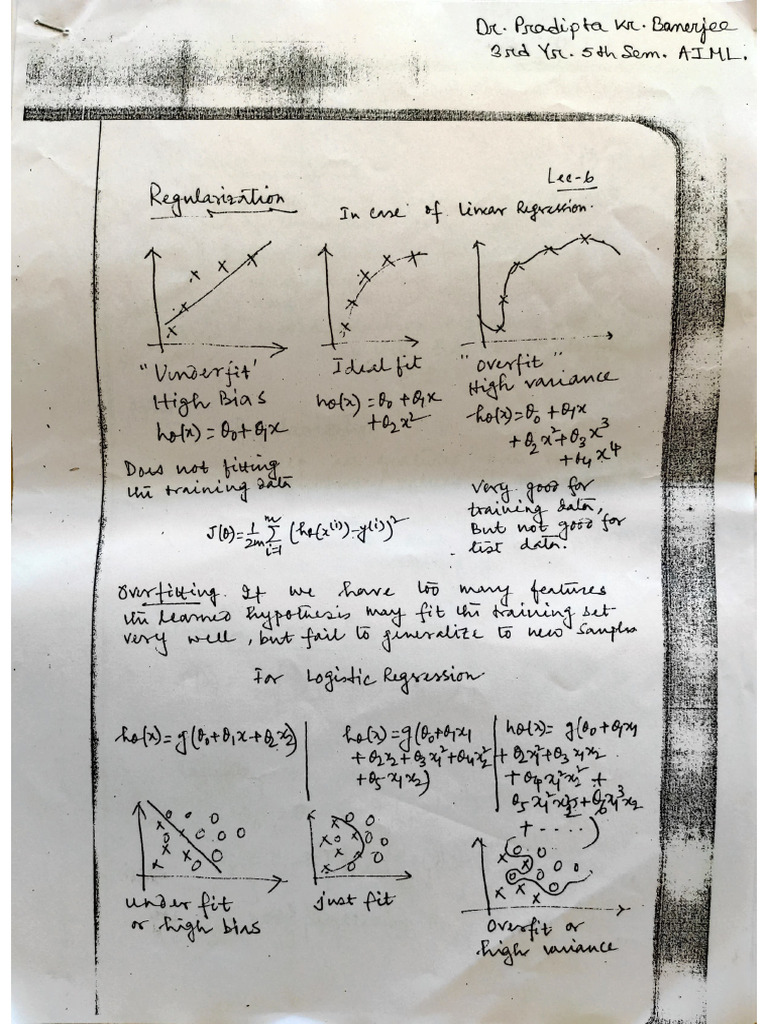 Dr. Pradipta Kr. Banerjee
3rd Yr. 5th Sem. AIML.
Lec-6
Regularization
In case of Linear Regression.
"Underfit"
High Bias
hθ(x) = θ0 + θ1x
Does not fitting
the training data
Ideal fit
hθ(x) = θ0 + θ1x
+ θ2x²
"Overfit"
High variance
hθ(x) = θ0 + θ1x
+ θ2x² + θ3x³
+ θ4x⁴
Very good for
training data,
But not good for
test data.
J(θ) = 1/2m Σ_{i=1}^{m} (hθ(x⁽ⁱ⁾) - y⁽ⁱ⁾)²
Overfitting. If we have too many features
the learned hypothesis may fit the training set
very well, but fail to generalize to new samples
For Logistic Regression
hθ(x) = g(θ0 + θ1x + θ2x2)
hθ(x) = g(θ0 + θ1x1
+ θ2x2 + θ3x1² + θ4x2²
+ θ5x1x2)
hθ(x) = g(θ0 + θ1x1
+ θ2x1² + θ3x1x2
+ θ4x1²x2² +
θ5x1²x2³ + θ6x1³x2
+ .....)
under fit
or high bias
just fit
Overfit or
high variance